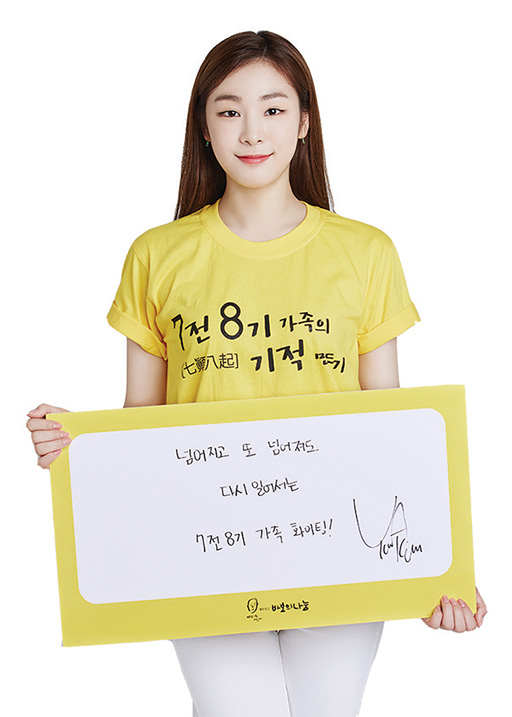 7전 8기 가족의
[七顚八起] 기적 만들기
넘어지고 또 넘어져도
다시 일어서는
7전 8기 가족 화이팅!
바보의나눔